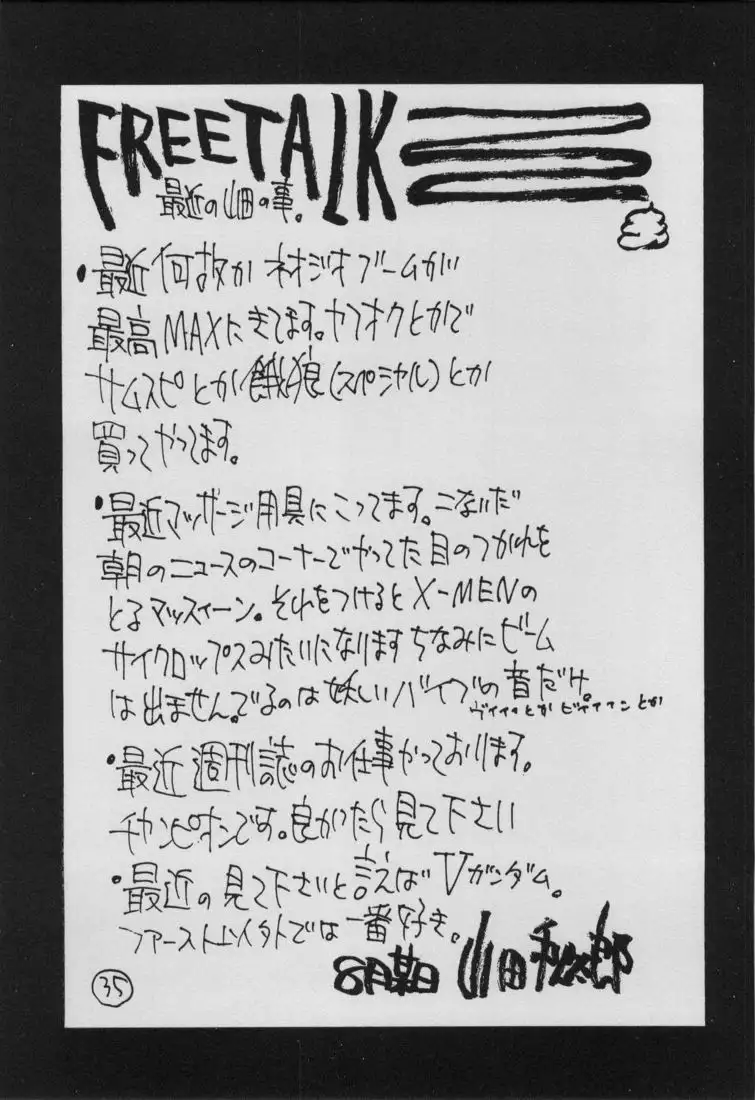 FREETALK
最近の山田の事。
・最近何故かネオジオブームが
最高MAXにきてます。ヤフオクとかで
サムスピとか餓狼(スペシャル)とか
買ってやってます。
・最近マッサージ用具にこってます。こないだ
朝のニュースのコーナーでやってた目のつかれを
とるマッスィーン。それをつけるとX-MENの
サイクロップスみたいになります ちなみにビーム
は出ません。でるのは妖しいバイブの音だけ。
ヴィィィとかビィィィンとか
・最近週刊誌のお仕事やっております。
チャンピオンです。良かったら見て下さい
・最近の見て下さいと言えばVガンダム。
ファースト以外では一番好き。
8月某日 山田秀太郎
35